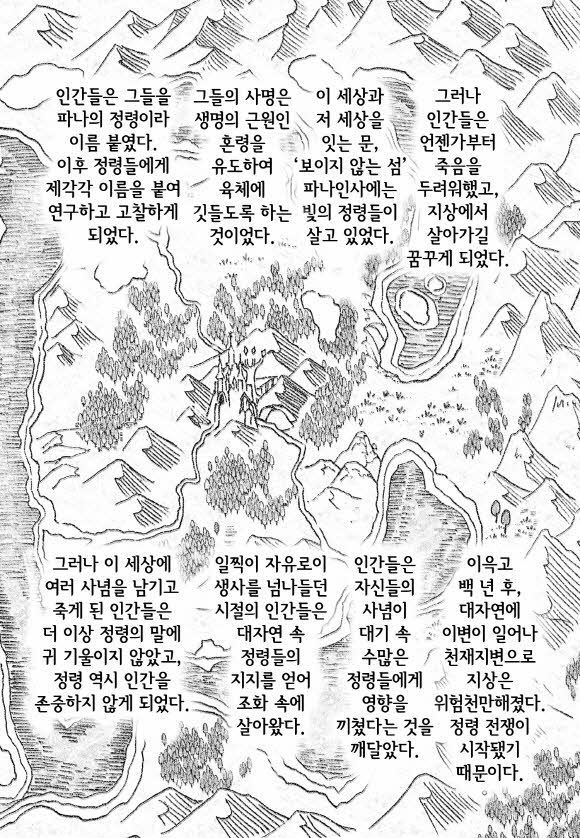 그러나
인간들은
언젠가부터
죽음을
두려워했고,
지상에서
살아가길
꿈꾸게 되었다.
이 세상과
저 세상을
잇는 문,
‘보이지 않는 섬’
파나인사에는
빛의 정령들이
살고 있었다.
그들의 사명은
생명의 근원인
혼령을
유도하여
육체에
깃들도록 하는
것이었다.
인간들은 그들을
파나의 정령이라
이름 붙였다.
이후 정령들에게
제각각 이름을 붙여
연구하고 고찰하게
되었다.
이윽고
백 년 후,
대자연에
이변이 일어나
천재지변으로
지상은
위험천만해졌다.
정령 전쟁이
시작됐기
때문이다.
인간들은
자신들의
사념이
대기 속
수많은
정령들에게
영향을
끼쳤다는 것을
깨달았다.
일찍이 자유로이
생사를 넘나들던
시절의 인간들은
대자연 속
정령들의
지지를 얻어
조화 속에
살아왔다.
그러나 이 세상에
여러 사념을 남기고
죽게 된 인간들은
더 이상 정령의 말에
귀 기울이지 않았고,
정령 역시 인간을
존중하지 않게 되었다.